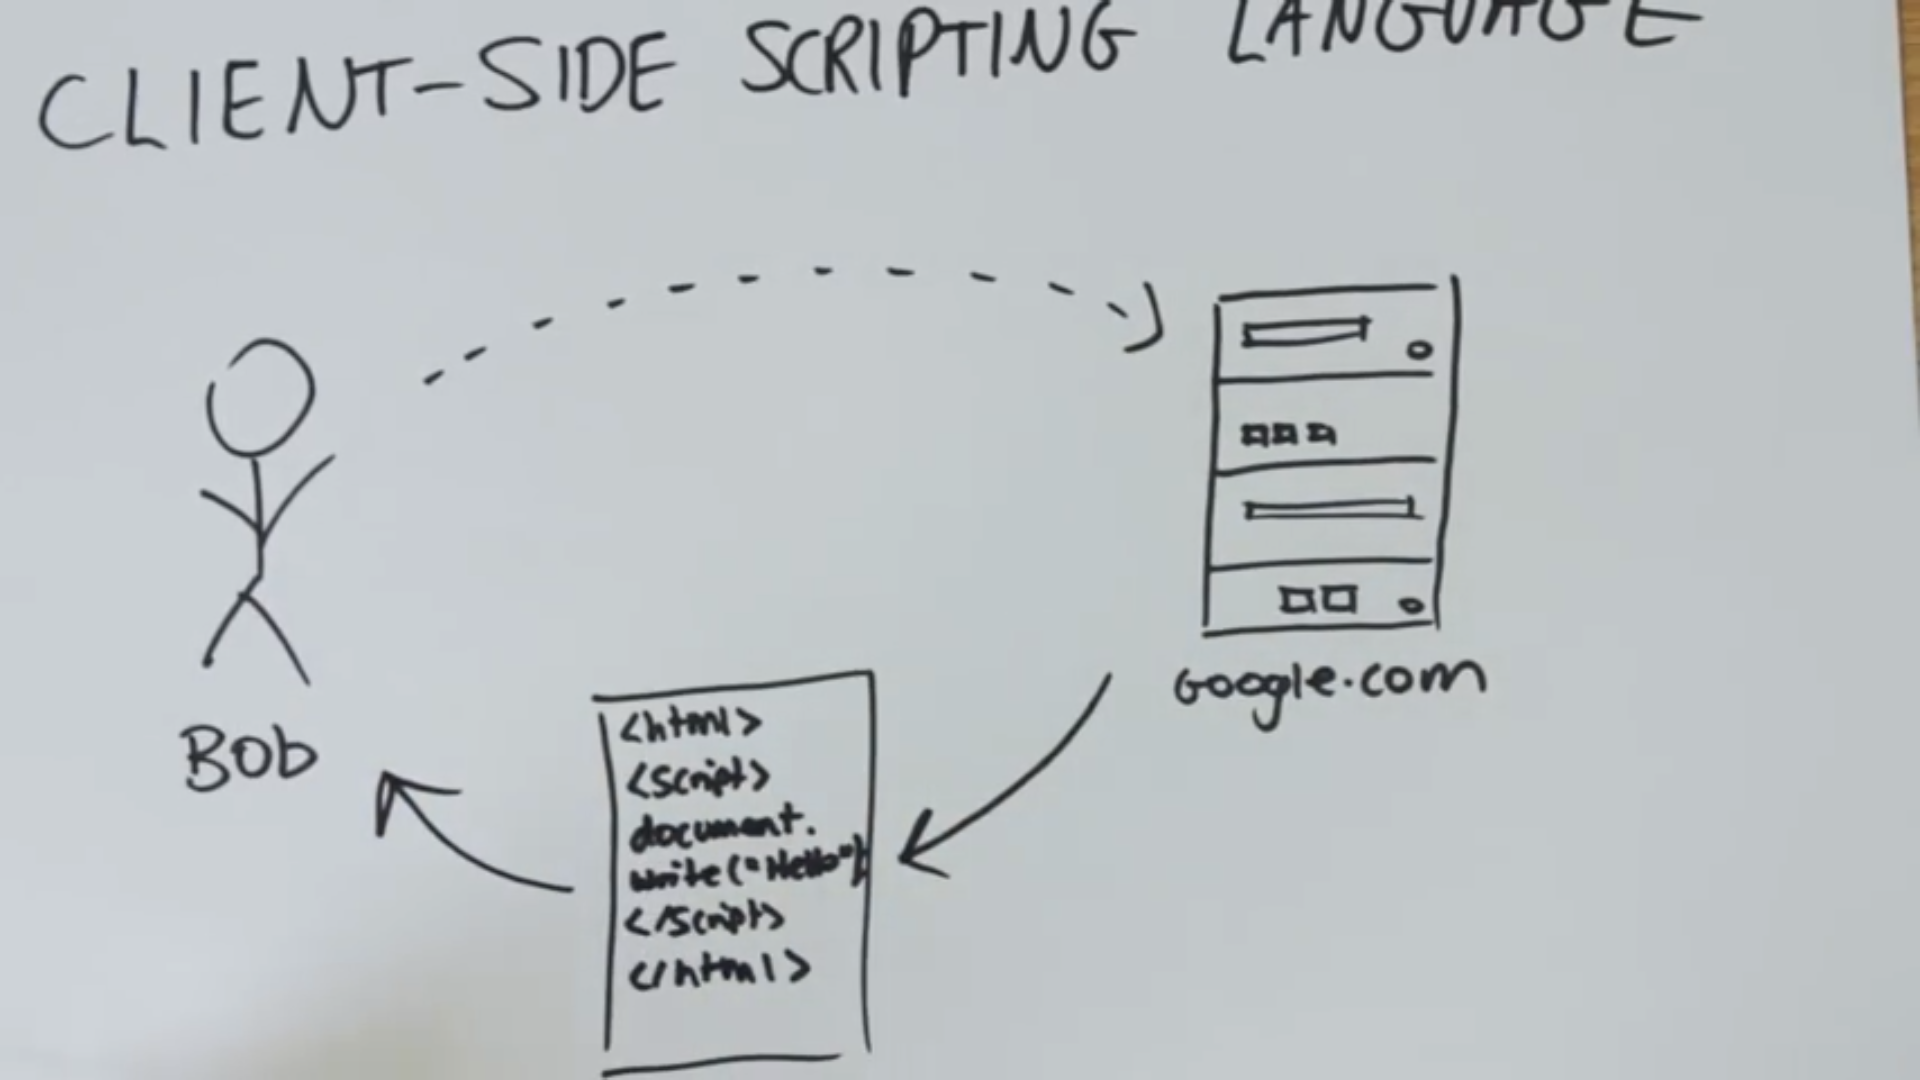 CLIENT-SIDE SCRIPTING LANGUAGE
BOB
Google.com
<html>
<script>
document.
write("Hello");
</script>
</html>